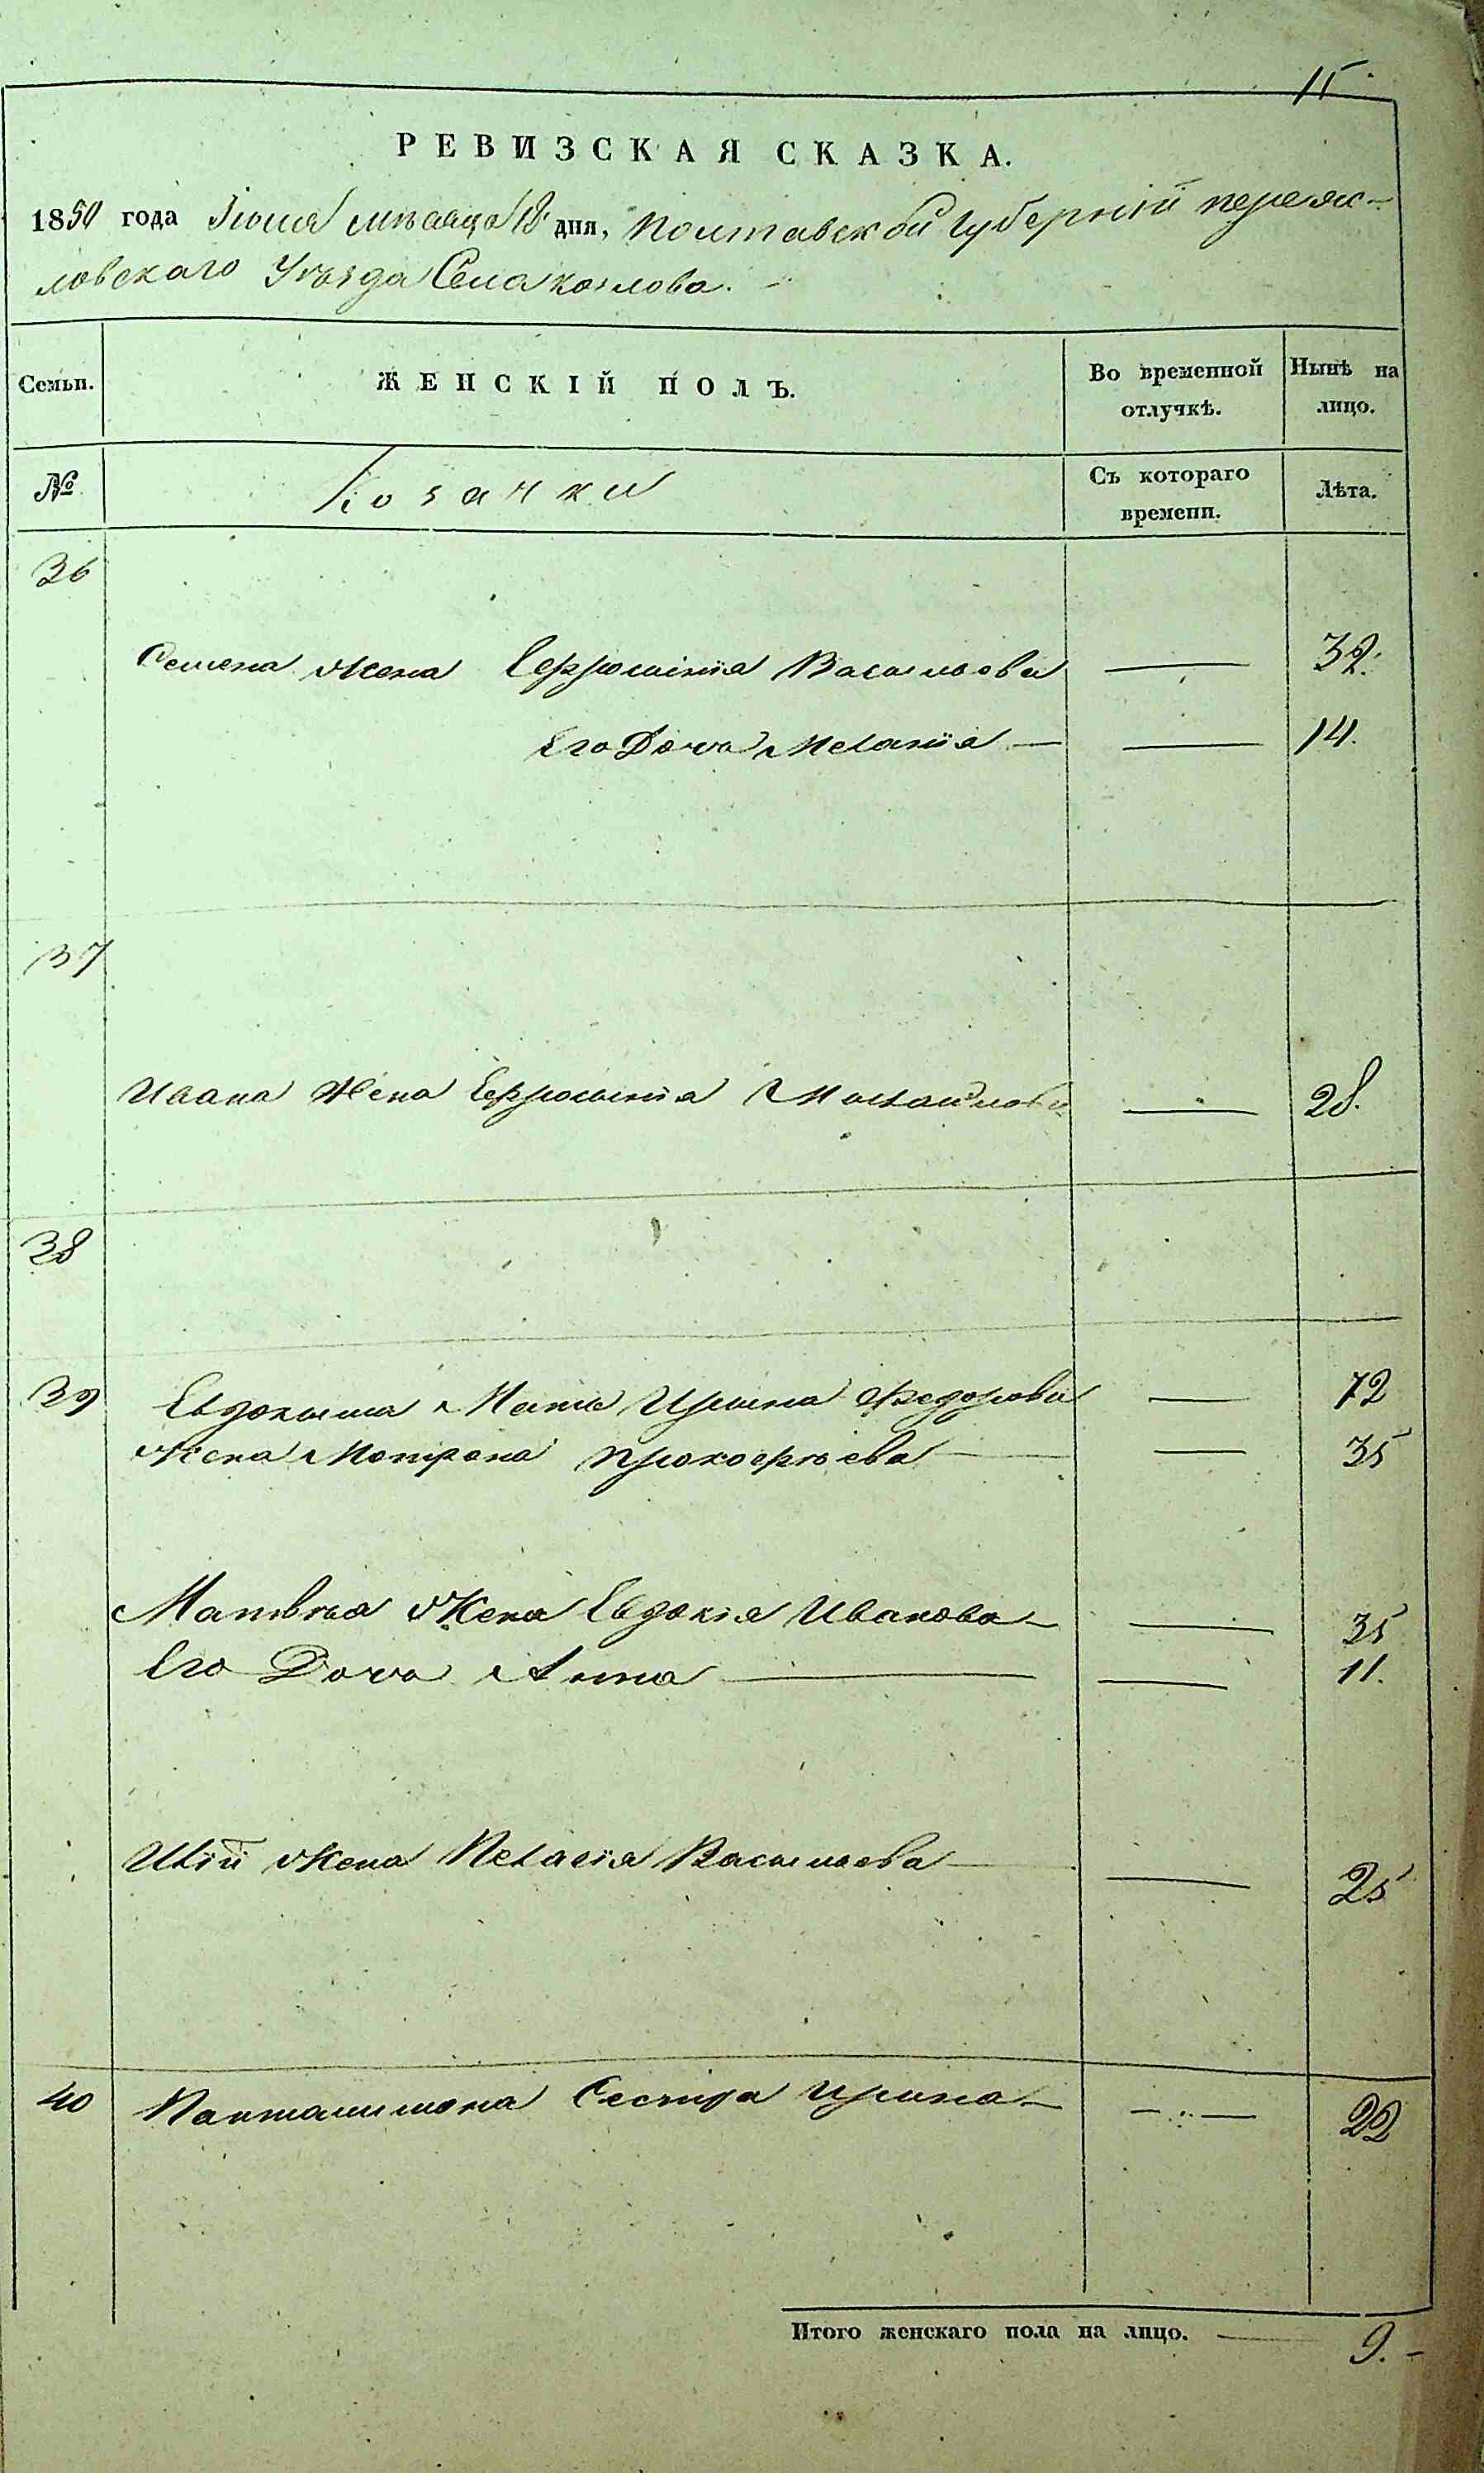 15.
РЕВИЗСКАЯ СКАЗКА.
1850 года Іюля мѣсяца 18 дня, Полтавской Губерніи переяс-
ловскаго Уѣзда Села козлова.
Семьи. ЖЕНСКІЙ ПОЛЪ. Во временной отлучкѣ. Нынѣ на лицо.
№ Козачки Съ котораго времени. Лѣта.
36
Семена жена Ефросинія Васильева — 32.
Его Дочь Меланія — — 14.
37
Ивана Жена Ефросинія Михайлова — 28.
38
39 Евдокима Мать Ирина Федорова — 72
жена Мотрона Прокофьева — — 35
Матвѣя Жена Евдокія Иванова — — 35
Его Дочь Анна — — 11.
Жена Пелагія Васильева — — 25
40 Пантилимона Сестра Ирина — — 22
Итого женскаго пола на лицо. — 9. -